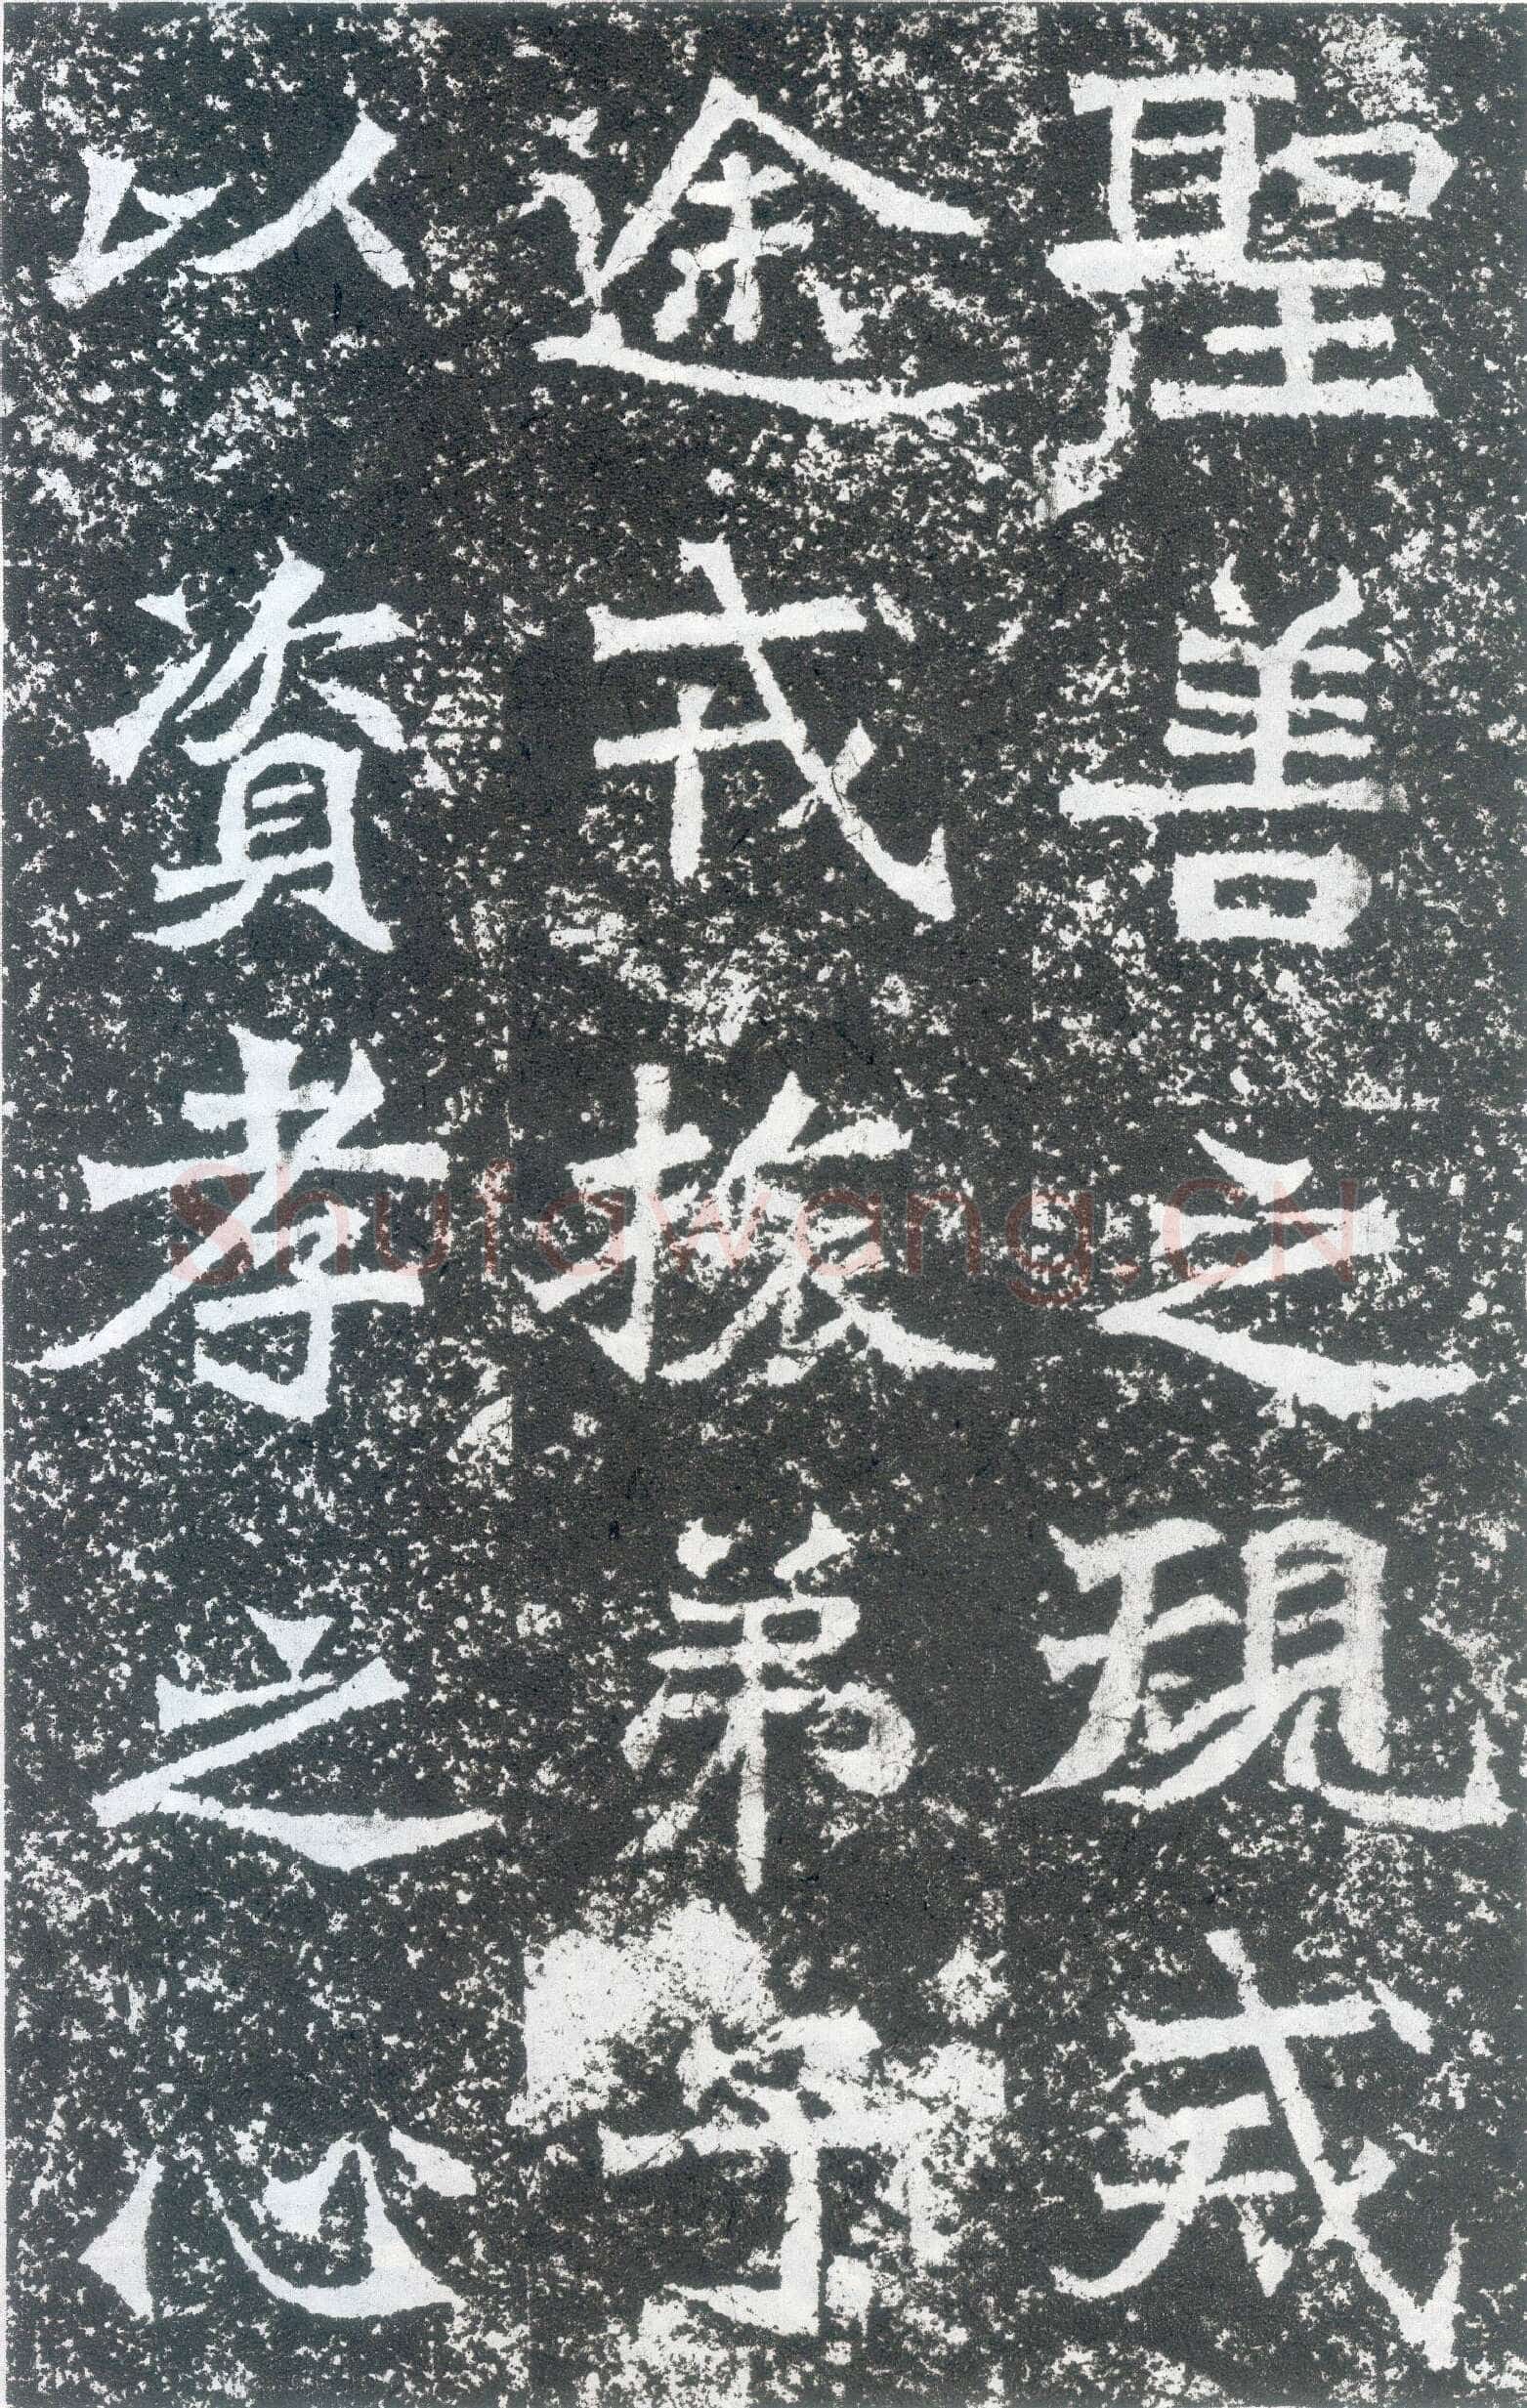 聖善之規戒
途戎旅弟子
以資孝之心
Shufawang.CN